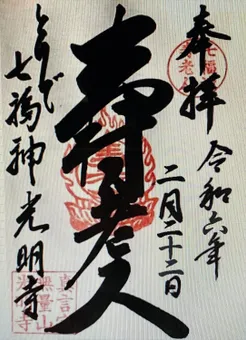 奉拝
令和六年
二月二十二日
寿老人
とりで
七福神 光明寺
真言宗
無量山
光明寺